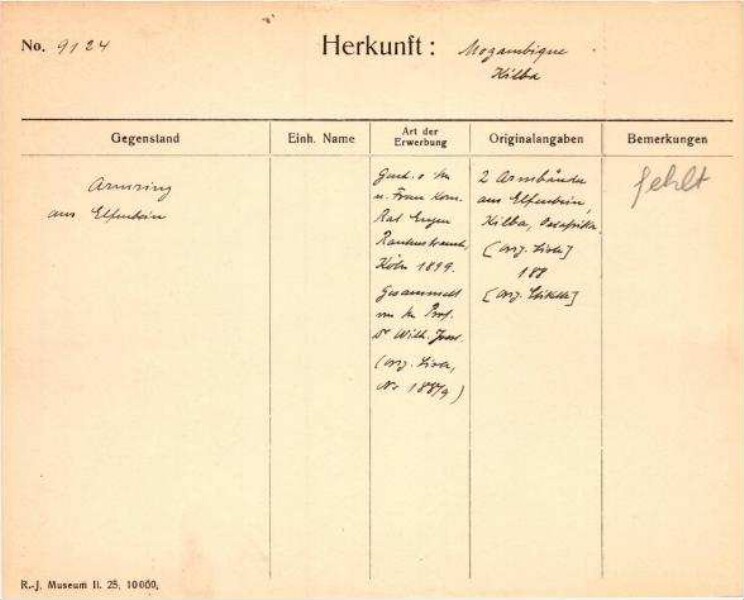 No. 9124 Herkunft: Mozambique
Kilba
Gegenstand Einh. Name Art der Erwerbung Originalangaben Bemerkungen
Armring
aus Elfenbein
Gesch. v. Hr.
u. Frau Kom.
Rat Eugen
Rautenstrauch,
Köln 1899.
Gesammelt
von Hr. Prof.
Dr Wilh. Joest.
(orig. Liste,
No 188/9)
2 Armbänder
aus Elfenbein,
Kilba, Ostafrika.
[orig. Liste]
188
[orig. Etikette]
fehlt
R.-J. Museum II. 25, 10000.